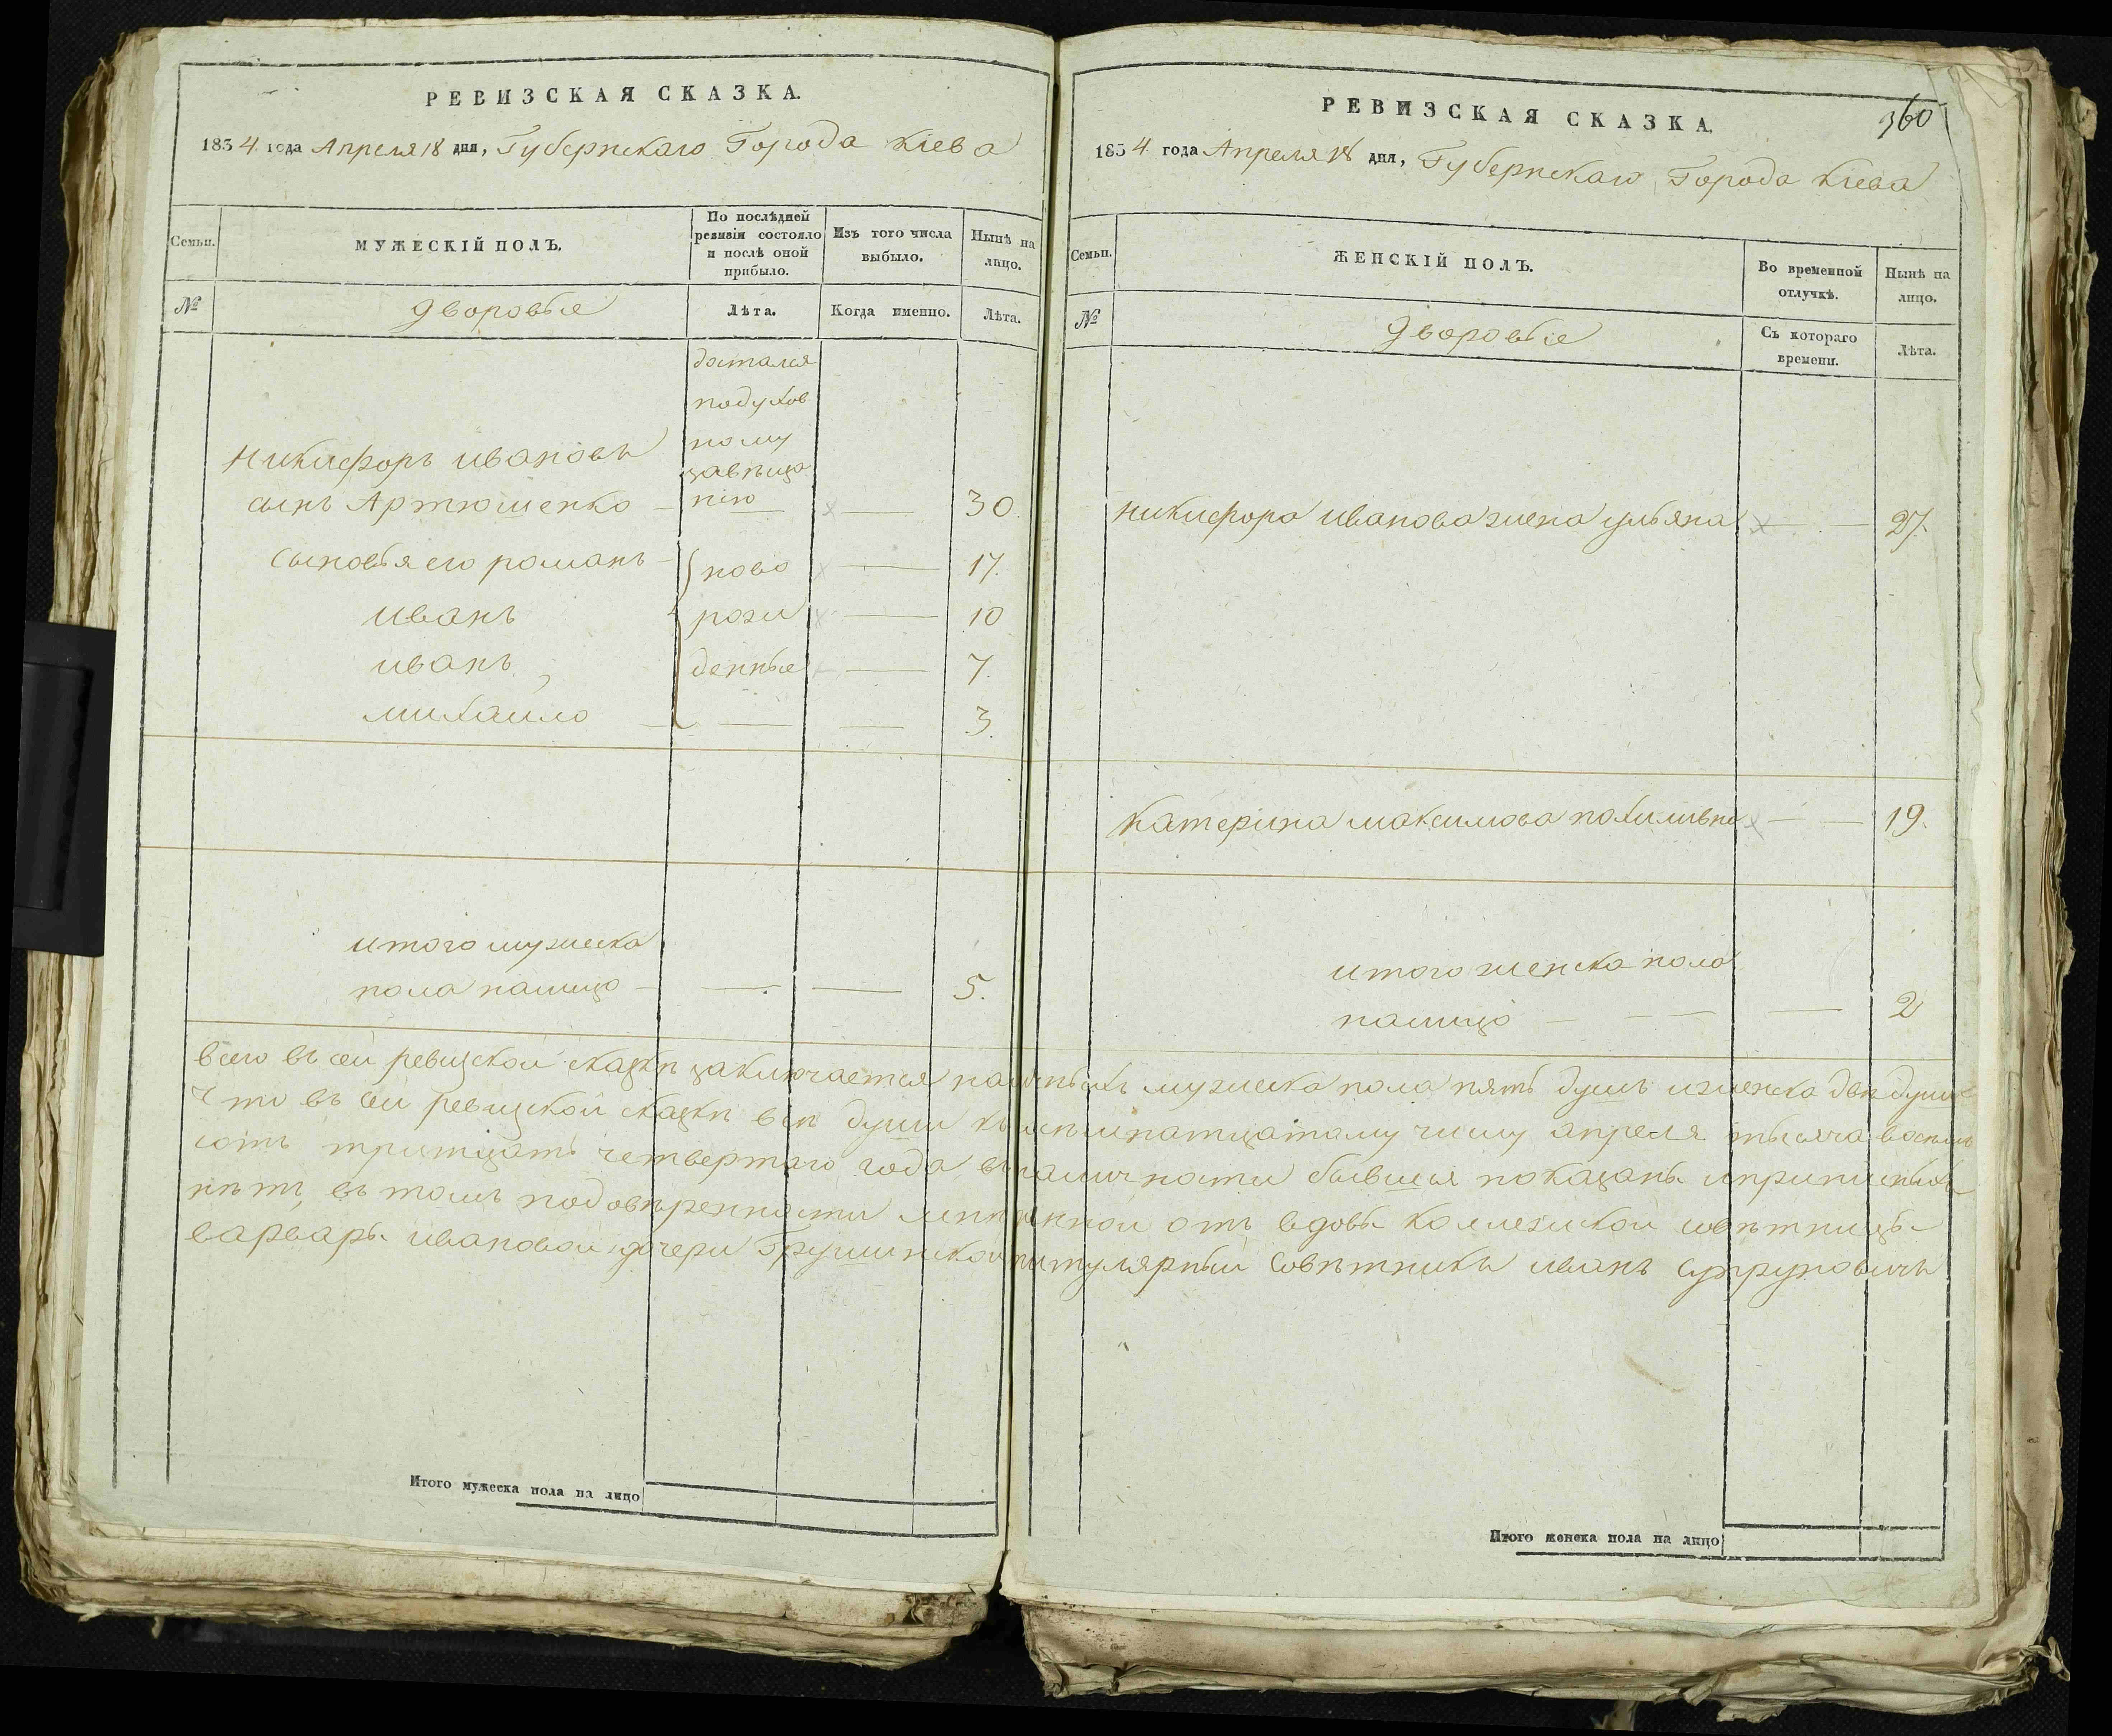 РЕВИЗСКАЯ СКАЗКА.
1834 года Апреля 18 дня, Губернскаго Города Кіева
Семьи.
МУЖЕСКІЙ ПОЛЪ.
По послѣдней
ревизіи состояло
и послѣ оной
прибыло.
Изъ того числа
выбыло.
Нынѣ на
лицо.
№
дворовые
Лѣта.
Когда именно.
Лѣта.
достался
подухов
ному
завѣща
Никифоръ ивановъ
сынъ Артюшенко — нію — 30.
сыновья его романъ ново — 17.
иванъ рож — 10
иванъ денные — 7.
михайло — — 3.
итого мужеска
пола налицо — — — 5.
Итого мужеска пола на лицо
РЕВИЗСКАЯ СКАЗКА.
360
1834 года Апреля 18 дня, Губернскаго Города Кіева
Семьи.
ЖЕНСКІЙ ПОЛЪ.
Во временной
отлучкѣ.
Нынѣ на
лицо.
№
дворовые
Съ котораго
времени.
Лѣта.
никифора иванова жена ульяна — — 27.
Катерина максимова — — 19.
итого женска пола
налицо — — — 2
всего въ сей ревизской сказкѣ заключается наличныхъ мужеска пола пять душъ иженска двѣ души
Что въ сей ревизской сказкѣ всѣ души къ осмнатцатому числу апреля тысяча восемь
сотъ тритцать четвертаго года въ наличности бывшыя показаны иприписныхъ
нѣтъ, въ томъ подовѣренности мнѣ данной отъ вдовы колежской совѣтницы
варвары ивановой дочери Грушинской титулярный Совѣтникъ иванъ
Итого женска пола на лицо